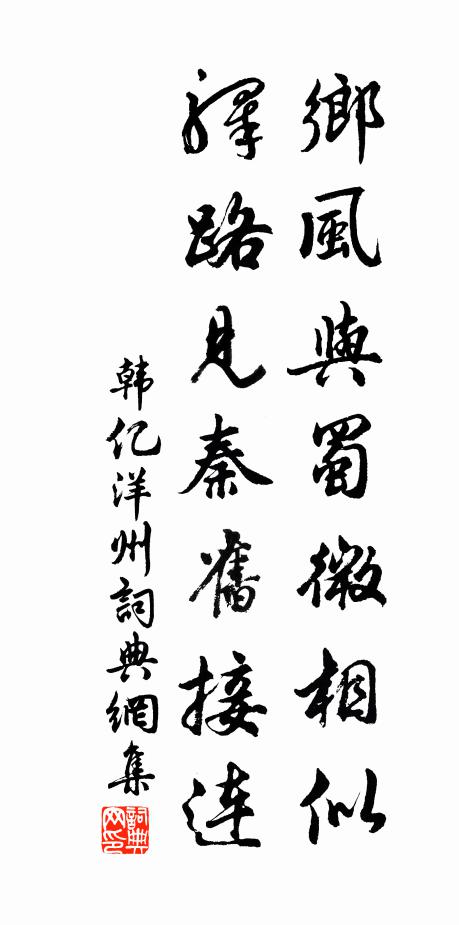 鄉風與蜀微相似
驛路見秦舊接連
韩亿洋州詞典網集
詞典网印